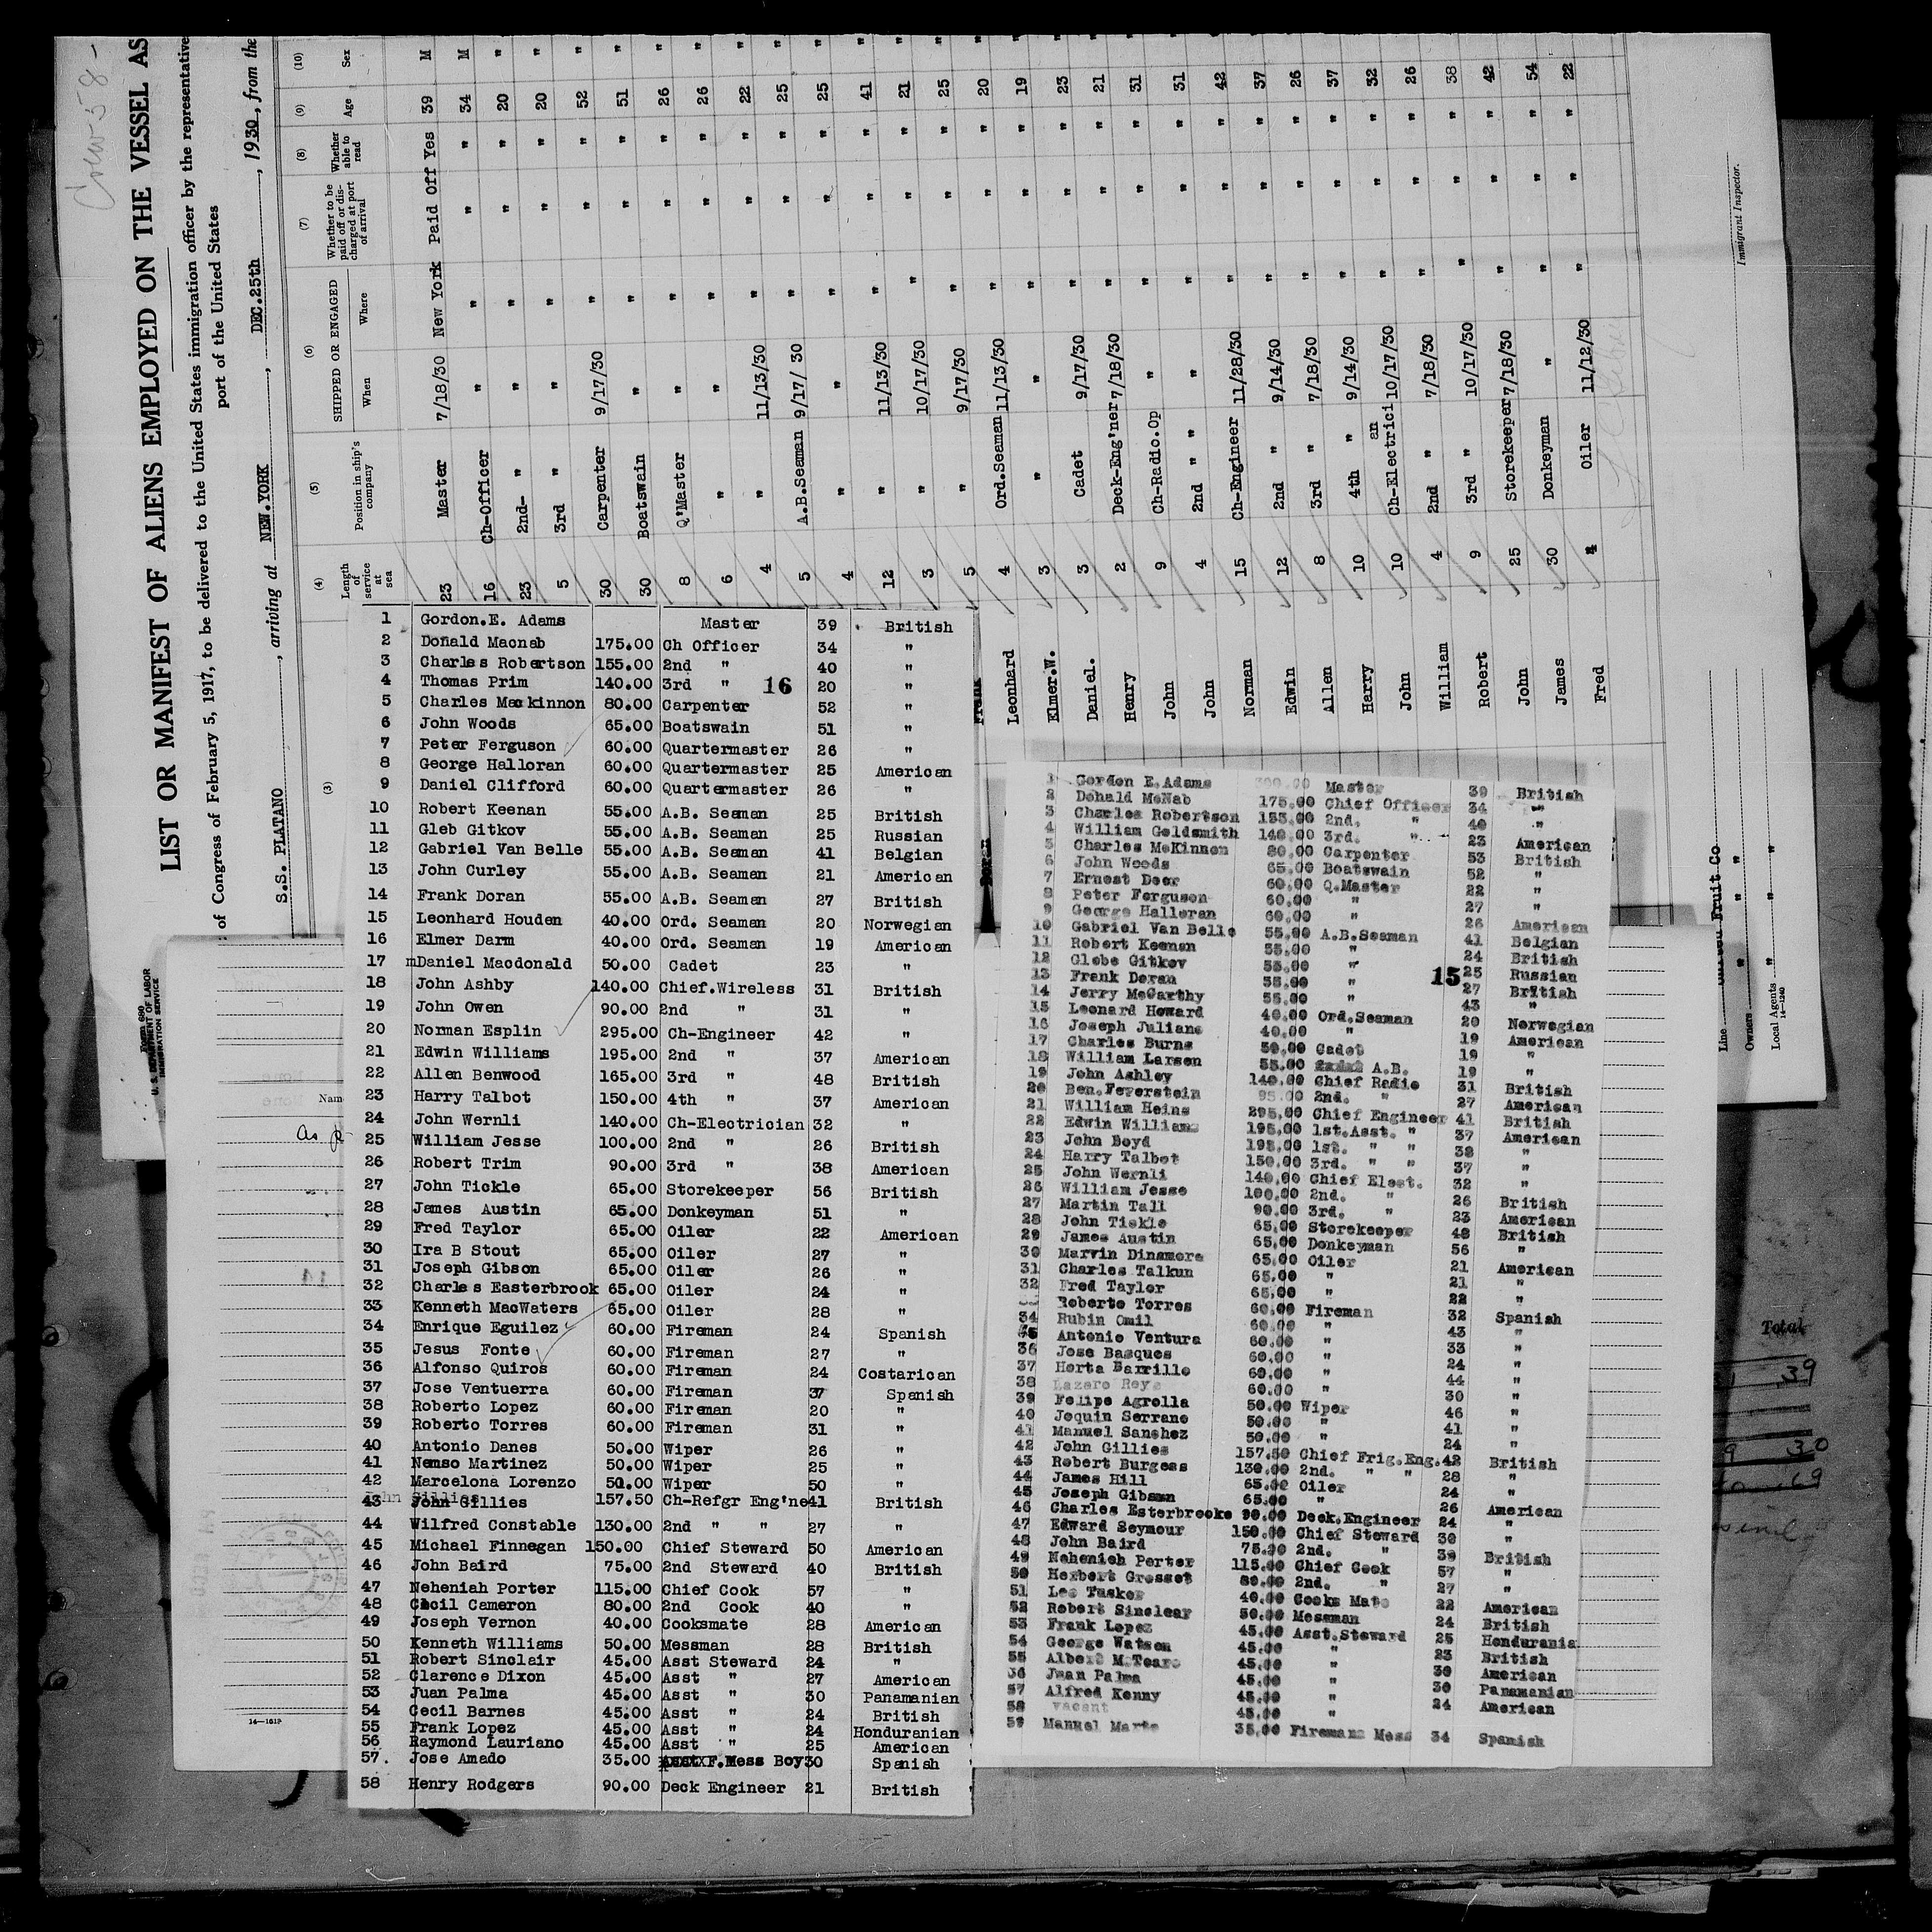 Crew 58-
LIST OR MANIFEST OF ALIENS EMPLOYED ON THE VESSEL AS
of Congress of February 5, 1917, to be delivered to the United States immigration officer by the representative
port of the United States
S.S. PLATANO, arriving at NEW.YORK, DEC.25th, 1930, from the
(3) (4) (5) (6) (7) (8) (9) (10)
Length of service at sea
Position in ship's company
SHIPPED OR ENGAGED
When Where
Whether to be paid off or discharged at port of arrival
Whether able to read
Age
Sex
23 Master 7/18/30 New York Paid Off Yes 39 M
16 Ch-Officer " " " " 34 M
23 2nd- " " " " " 20 "
5 3rd " " " " " 20 "
30 Carpenter 9/17/30 " " " 52 "
30 Boatswain " " " " 51 "
8 Q'Master " " " " 26 "
6 " " " " " 26 "
4 " 11/13/30 " " " 22 "
5 A.B.Seaman 9/17/ 30 " " " 25 "
4 " " " " " 25 "
12 " 11/13/30 " " " 41 "
3 " 10/17/30 " " " 21 "
5 " 9/17/30 " " " 25 "
Leonhard 4 Ord.Seaman 11/13/30 " " " 20 "
Elmer.W. 3 " " " " " 19 "
Daniel. 3 Cadet 9/17/30 " " " 23 "
Henry 2 Deck-Eng'ner 7/18/30 " " " 21 "
John 9 Ch-Radio.Op " " " " 31 "
John 4 2nd " " " " " " 31 "
Norman 15 Ch-Engineer 11/28/30 " " " 42 "
Edwin 12 2nd " 9/14/30 " " " 37 "
Allen 8 3rd " 7/18/30 " " " 26 "
Harry 10 4th " 9/14/30 " " " 37 "
John 10 Ch-Electrician 10/17/30 " " " 32 "
William 4 2nd " 7/18/30 " " " 26 "
Robert 9 3rd " 10/17/30 " " " 38 "
John 25 Storekeeper 7/18/30 " " " 42 "
James 30 Donkeyman " " " " 54 "
Fred 4 Oiler 11/12/30 " " " 22 "
Immigrant Inspector.
Form 680
U. S. DEPARTMENT OF LABOR
IMMIGRATION SERVICE
1 Gordon.E. Adams Master 39 British
2 Donald Macnab 175.00 Ch Officer 34 "
3 Charles Robertson 155.00 2nd " 40 "
4 Thomas Prim 140.00 3rd " 16 20 "
5 Charles Mackinnon 80.00 Carpenter 52 "
6 John Woods 65.00 Boatswain 51 "
7 Peter Ferguson 60.00 Quartermaster 26 "
8 George Halloran 60.00 Quartermaster 25 American
9 Daniel Clifford 60.00 Quartermaster 26 "
10 Robert Keenan 55.00 A.B. Seaman 25 British
11 Gleb Gitkov 55.00 A.B. Seaman 25 Russian
12 Gabriel Van Belle 55.00 A.B. Seaman 41 Belgian
13 John Curley 55.00 A.B. Seaman 21 American
14 Frank Doran 55.00 A.B. Seaman 27 British
15 Leonhard Houden 40.00 Ord. Seaman 20 Norwegian
16 Elmer Darm 40.00 Ord. Seaman 19 American
17 mDaniel Macdonald 50.00 Cadet 23 "
18 John Ashby 140.00 Chief.Wireless 31 British
19 John Owen 90.00 2nd " 31 "
20 Norman Esplin 295.00 Ch-Engineer 42 "
21 Edwin Williams 195.00 2nd " 37 American
22 Allen Benwood 165.00 3rd " 48 British
23 Harry Talbot 150.00 4th " 37 American
24 John Wernli 140.00 Ch-Electrician 32 "
25 William Jesse 100.00 2nd " 26 British
26 Robert Trim 90.00 3rd " 38 American
27 John Tickle 65.00 Storekeeper 56 British
28 James Austin 65.00 Donkeyman 51 "
29 Fred Taylor 65.00 Oiler 22 American
30 Ira B Stout 65.00 Oiler 27 "
31 Joseph Gibson 65.00 Oiler 26 "
32 Charles Easterbrook 65.00 Oiler 24 "
33 Kenneth MacWaters 65.00 Oiler 28 "
34 Enrique Eguilez 60.00 Fireman 24 Spanish
35 Jesus Fonte 60.00 Fireman 27 "
36 Alfonso Quiros 60.00 Fireman 24 Costarican
37 Jose Ventuerra 60.00 Fireman 37 Spanish
38 Roberto Lopez 60.00 Fireman 20 "
39 Roberto Torres 60.00 Fireman 31 "
40 Antonio Danes 50.00 Wiper 26 "
41 Nemso Martinez 50.00 Wiper 25 "
42 Marcelona Lorenzo 50.00 Wiper 50 "
43 John Gillies 157.50 Ch-Refgr Eng'ne 41 British
44 Wilfred Constable 130.00 2nd " " 27 "
45 Michael Finnegan 150.00 Chief Steward 50 American
46 John Baird 75.00 2nd Steward 40 British
47 Neheniah Porter 115.00 Chief Cook 57 "
48 Cecil Cameron 80.00 2nd Cook 40 "
49 Joseph Vernon 40.00 Cooksmate 28 American
50 Kenneth Williams 50.00 Messman 28 British
51 Robert Sinclair 45.00 Asst Steward 24 "
52 Clarence Dixon 45.00 Asst " 27 American
53 Juan Palma 45.00 Asst " 30 Panamanian
54 Cecil Barnes 45.00 Asst " 24 British
55 Frank Lopez 45.00 Asst " 24 Honduranian
56 Raymond Lauriano 45.00 Asst " 25 American
57. Jose Amado 35.00 F.Mess Boy 30 Spanish
58 Henry Rodgers 90.00 Deck Engineer 21 British
1 Gordon E.Adams 300.00 Master 39 British
2 Donald McNab 175.00 Chief Officer 34 "
3 Charles Robertson 155.00 2nd. " 40 "
4 William Goldsmith 140.00 3rd. " 23 American
5 Charles McKinnon 80.00 Carpenter 53 British
6 John Woods 65.00 Boatswain 52 "
7 Ernest Deer 60.00 Q.Master 22 "
8 Peter Ferguson 60.00 " 27 "
9 George Halloran 60.00 " 26 American
10 Gabriel Van Belle 55.00 A.B.Seaman 41 Belgian
11 Robert Keenan 55.00 " 24 British
12 Glebe Gitkov 55.00 " 15 25 Russian
13 Frank Doran 55.00 " 27 British
14 Jerry McCarthy 55.00 " 43 "
15 Leonard Howard 40.00 Ord.Seaman 20 Norwegian
16 Joseph Juliano 40.00 " 19 American
17 Charles Burns 50.00 Cadet 19 "
18 William Larsen 55.00 A.B. 19 "
19 John Ashley 140.00 Chief Radio 31 British
20 Ben.Feverstein 95.00 2nd. " 27 American
21 William Heins 295.00 Chief Engineer 41 British
22 Edwin Williams 195.00 1st.Asst. " 37 American
23 John Boyd 195.00 1st. " " 38 "
24 Harry Talbot 150.00 3rd. " " 37 "
25 John Wernli 140.00 Chief Elect. 32 "
26 William Jesse 100.00 2nd. " 26 British
27 Martin Tali 90.00 3rd. " 23 American
28 John Tickle 65.00 Storekeeper 48 British
29 James Austin 65.00 Donkeyman 56 "
30 Marvin Dinsmore 65.00 Oiler 21 American
31 Charles Talkun 65.00 " 21 "
32 Fred Taylor 65.00 " 22 "
Roberto Torres 60.00 Fireman 32 Spanish
34 Rubin Omil 60.00 " 43 "
35 Antonio Ventura 60.00 " 33 "
36 Jose Basques 60.00 " 24 "
37 Horta Barrillo 60.00 " 44 "
38 Lazero Reys 60.00 " 30 "
39 Felipe Agrolla 50.00 Wiper 46 "
40 Joquin Serrano 50.00 " 41 "
41 Manuel Sanchez 50.00 " 24 "
42 John Gillies 157.50 Chief Frig.Eng. 42 British
43 Robert Burgess 130.00 2nd. " " 28 "
44 James Hill 65.00 Oiler 24 "
45 Joseph Gibson 65.00 " 26 American
46 Charles Esterbrooke 90.00 Deck.Engineer 24 "
47 Edward Seymour 150.00 Chief Steward 30 "
48 John Baird 75.00 2nd. " 39 British
49 Neheniah Porter 115.00 Chief Cook 57 "
50 Herbert Grosset 80.00 2nd. " 27 "
51 Leo Tasker 40.00 Cooks Mate 22 American
52 Robert Sinclear 50.00 Messman 24 British
53 Frank Lopez 45.00 Asst.Steward 25 Hondurania
54 George Watson 45.00 " 23 British
55 Albert 45.00 " 30 American
56 Juan Palma 45.00 " 30 Panamanian
57 Alfred Kenny 45.00 " 24 American
58 vacant 45.00 "
59 Manuel Marte 35.00 Firemans Mess 34 Spanish
Line Fruit Co
Owners " "
Local Agents " "
14-1240
Total
39
30
69
14-1619